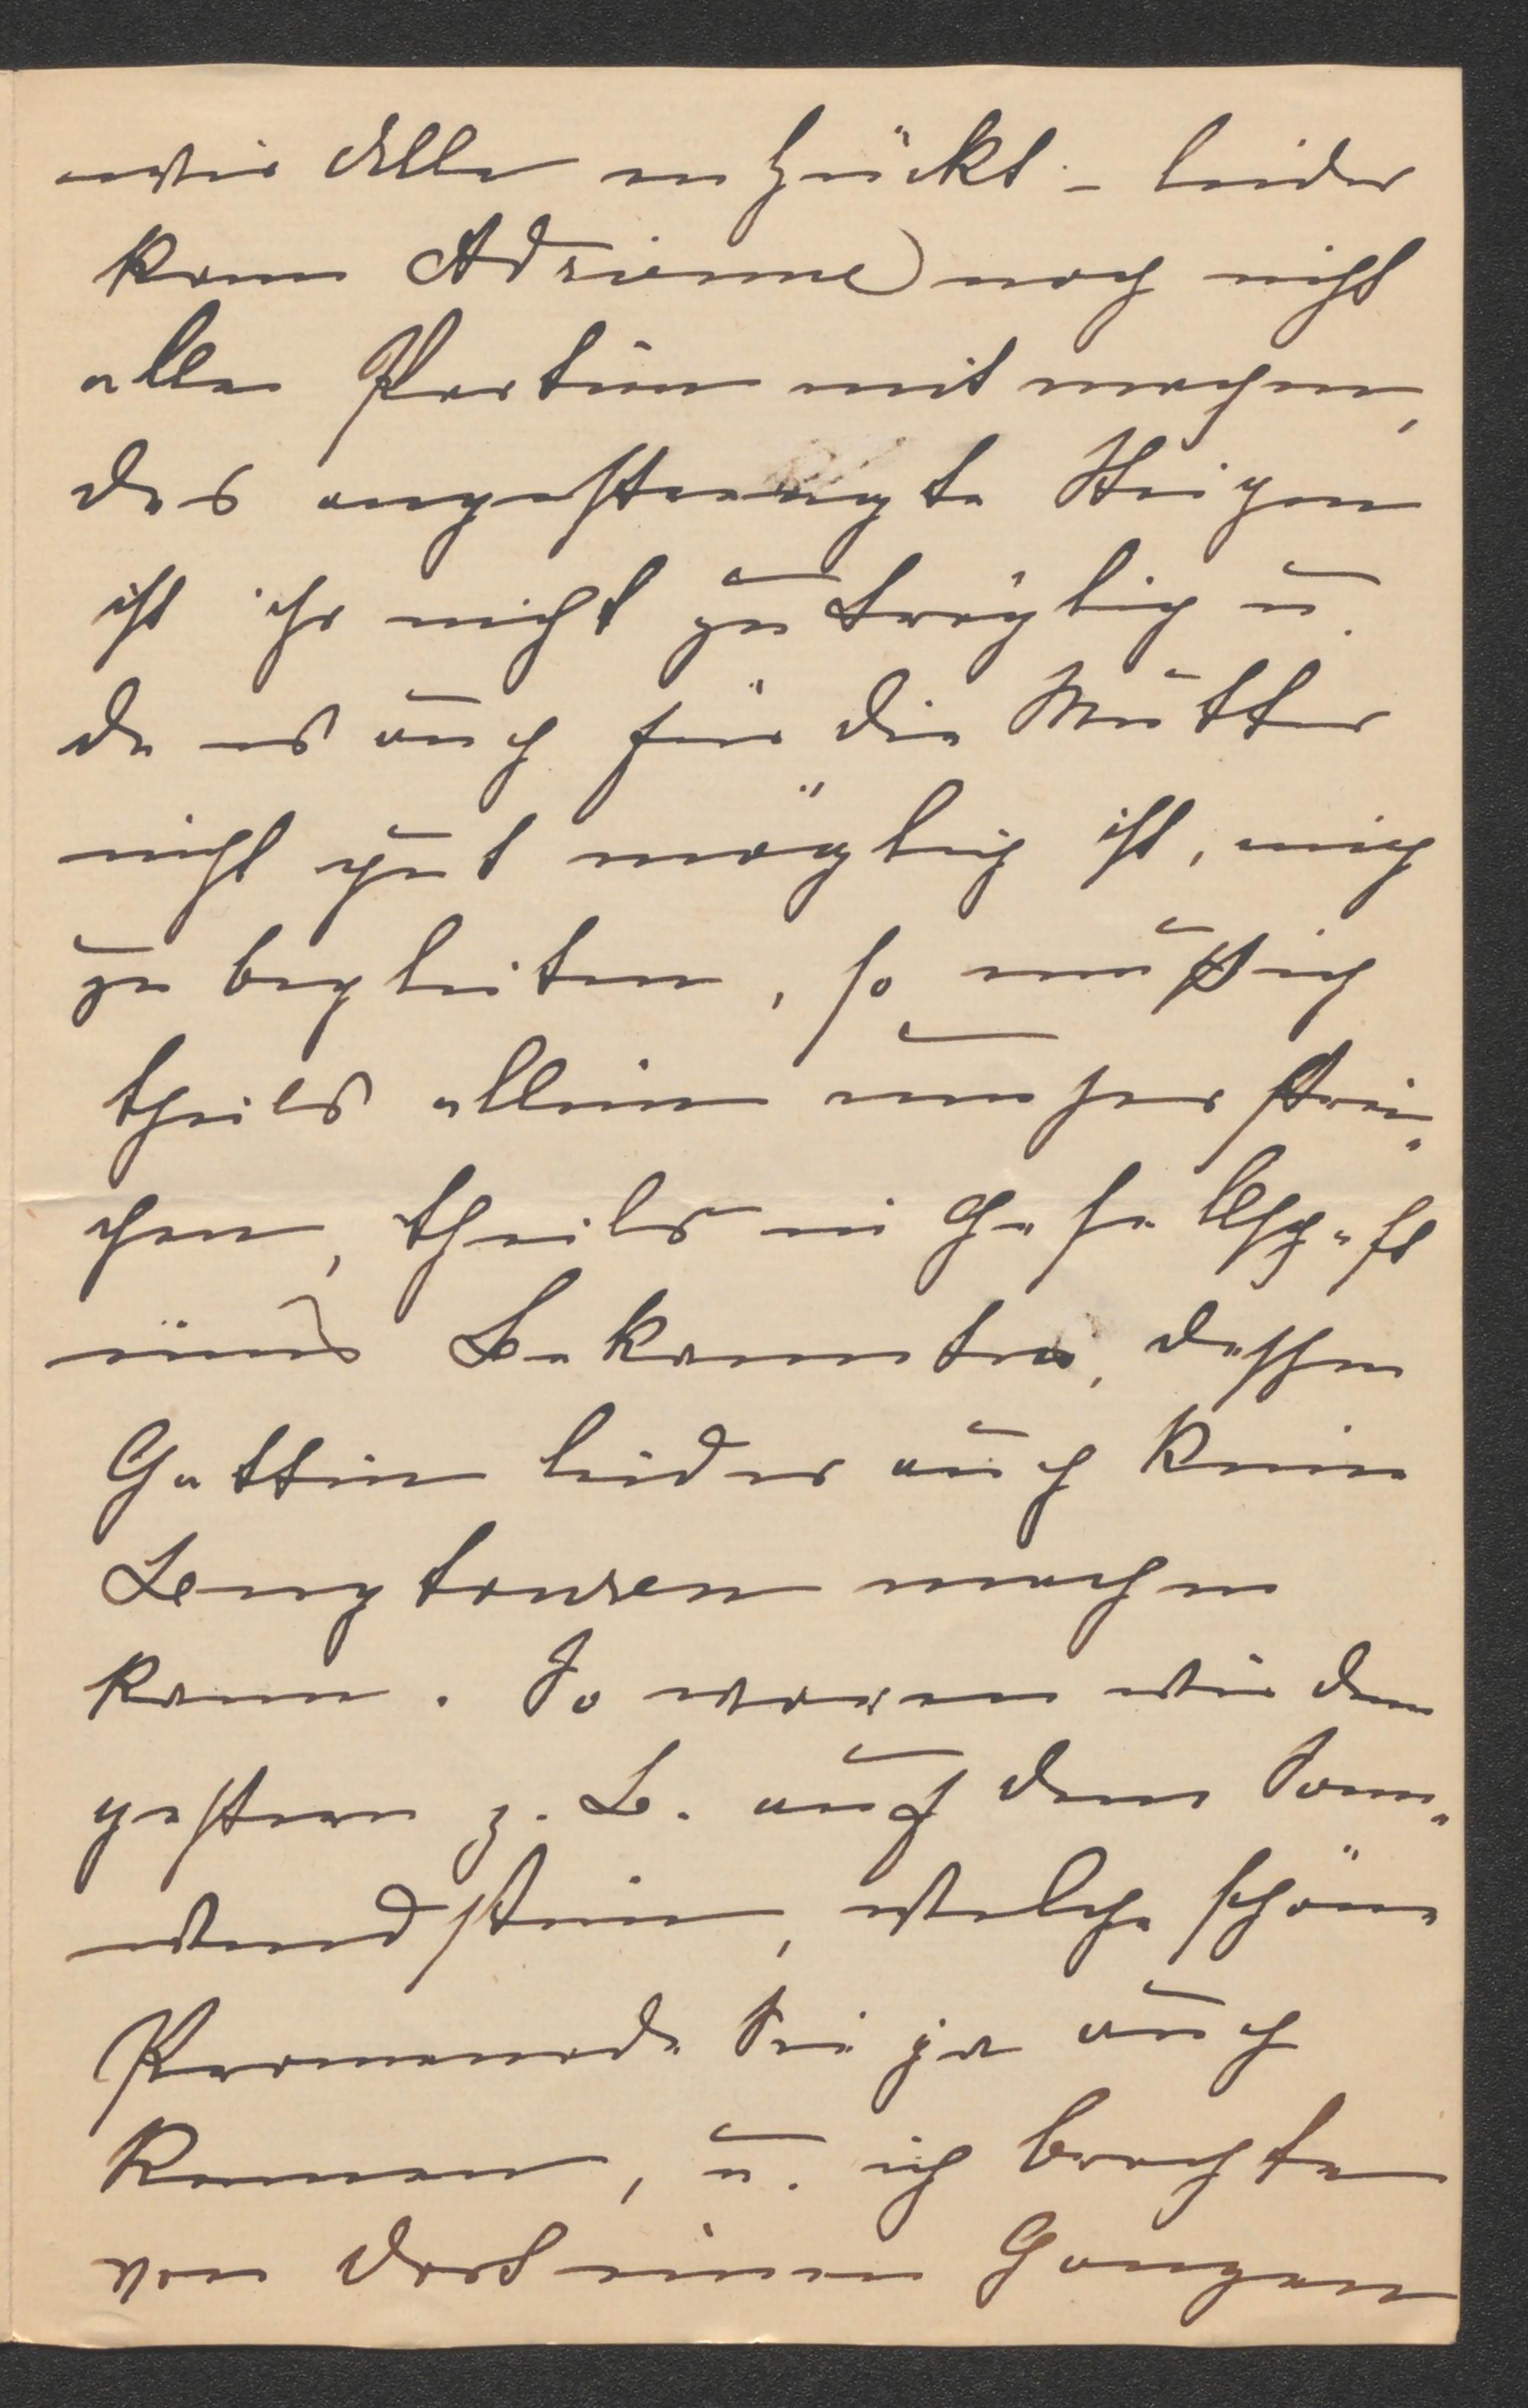 wir Alle entzückt – leider
kann Adrienne noch nicht
alle Partien mit machen,
das angestrengte Steigen
ist ihr nicht zuträglich u.
da es auch für die Mutter
nicht gut möglich ist, mich
zu begleiten, so muß ich
theils allein umher strei-
chen, theils in Gesellschaft
eines Bekannten, dessen
Gattin leider auch keine
Bergtouren machen
kann. So waren wir denn
gestern z. B. auf dem Sonn-
wendstein, welche schöne
Promenade Sie ja auch
kennen, u. ich brachte
von dort einen ganzen